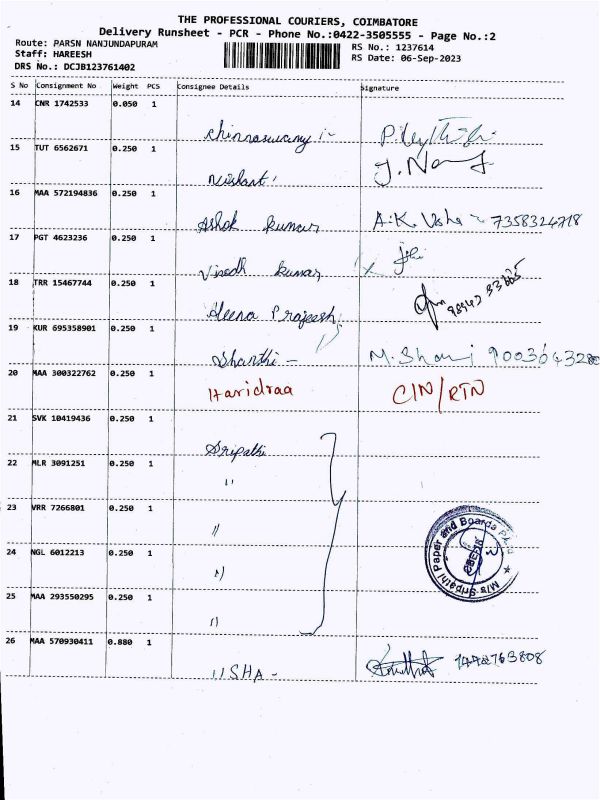 THE PROFESSIONAL COURIERS, COIMBATORE
Delivery Runsheet - PCR - Phone No.:0422-3505555 - Page No.:2
Route: PARSN NANJUNDAPURAM
Staff: HAREESH
DRS No.: DCJB123761402
RS No.: 1237614
RS Date: 06-Sep-2023
S No Consignment No Weight PCS Consignee Details Signature
14 CNR 1742533 0.050 1
Chinnaswamy :-
15 TUT 6562671 0.250 1
Nishant J.
16 MAA 572194836 0.250 1
Ashok kumar A.K. Usha 7358324718
17 PGT 4623236 0.250 1
Vinodh kumar X
18 TRR 15467744 0.250 1
Prajeesh
19 KUR 695358901 0.250 1
Shanthi - M.
20 MAA 300322762 0.250 1
Haridraa CIN/RTN
21 SVK 10419436 0.250 1
Sripathi
22 MLR 3091251 0.250 1
"
23 VRR 7266801 0.250 1
"
24 NGL 6012213 0.250 1
"
25 MAA 293550295 0.250 1
"
M/s Sripathi Paper and Boards
26 MAA 570930411 0.880 1
USHA -